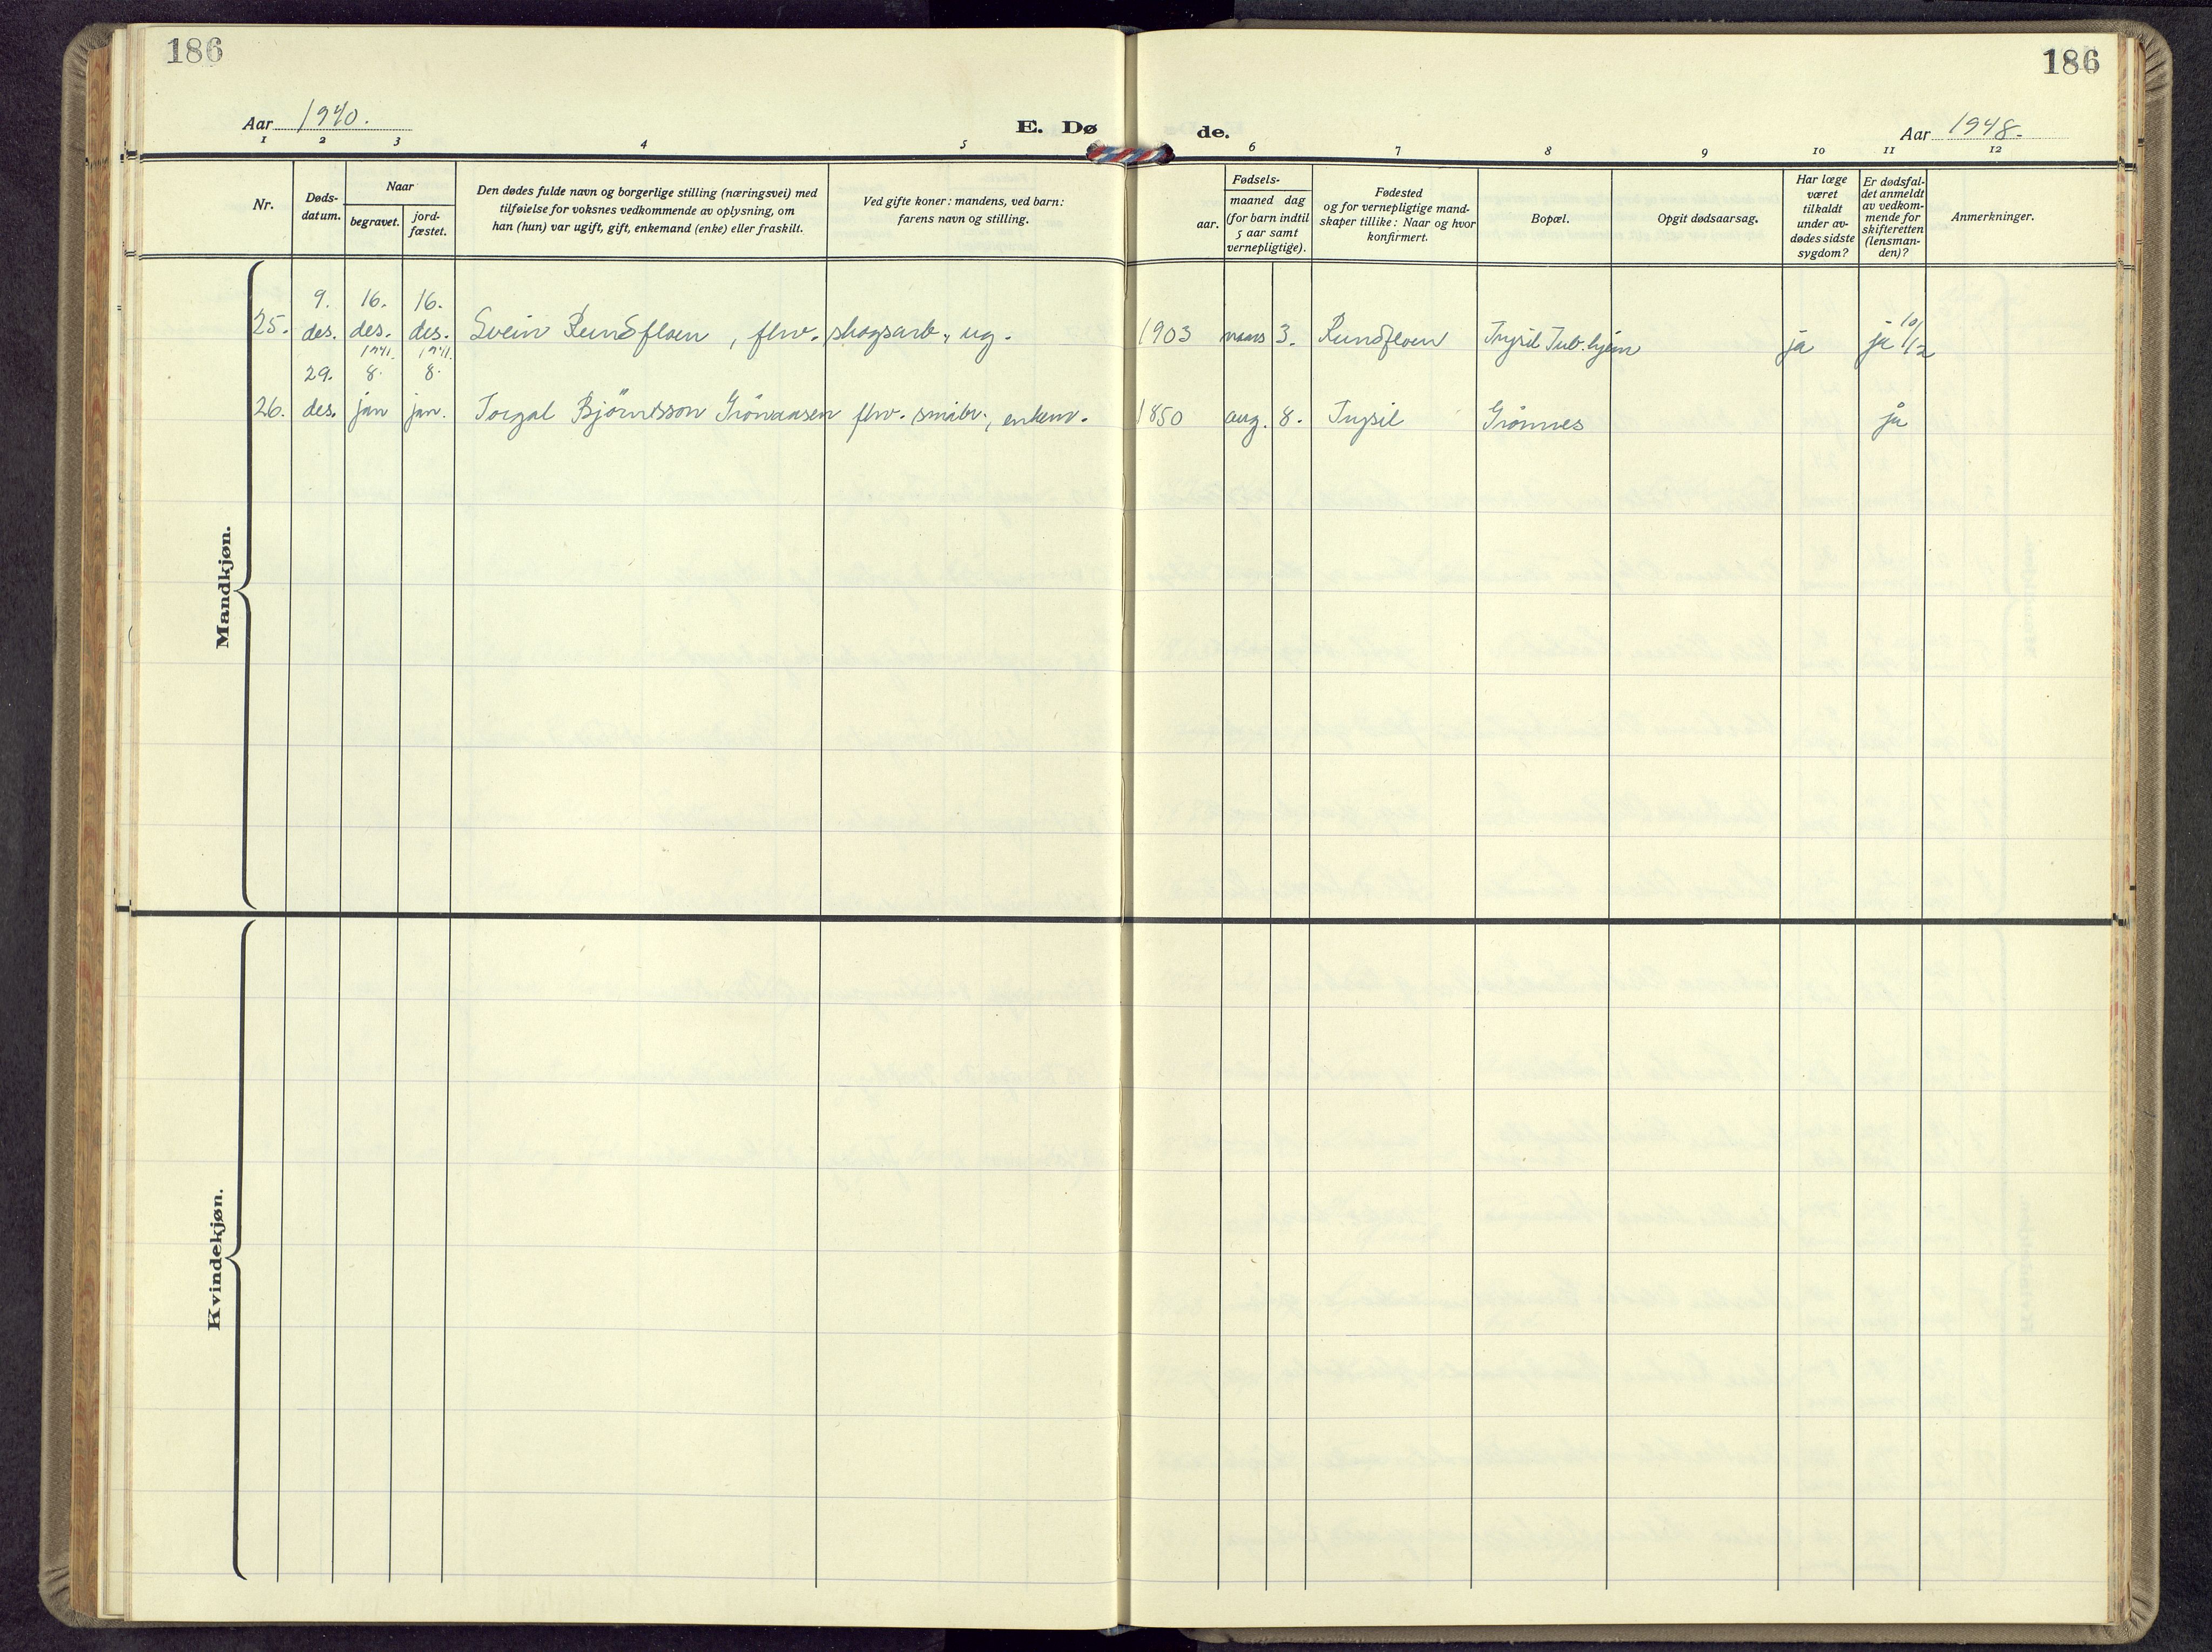 186
186
Aar 1940.
E. Dø
de.
Aar 1948.
1 2 3 4 5 6 7 8 9 10 11 12
Nr.
Døds-
datum.
Naar
begravet.
jord-
fæstet.
Den dødes fulde navn og borgerlige stilling (næringsvei) med
tilføielse for voksnes vedkommende av oplysning, om
han (hun) var ugift, gift, enkemand (enke) eller fraskilt.
Ved gifte koner: mandens, ved barn:
farens navn og stilling.
Fødsels-
aar.
maaned dag
(for barn indtil
5 aar samt
vernepligtige).
Fødested
og for vernepligtige mand-
skaper tillike: Naar og hvor
konfirmert.
Bopæl.
Opgit dødsaarsag.
Har læge
været
tilkaldt
under av-
dødes sidste
sygdom?
Er dødsfal-
det anmeldt
av vedkom-
mende for
skifteretten
(lensman-
den)?
Anmerkninger.
Mandkjøn.
9. 16. 16.
25. des. des. des. Svein Rundfloen, fhv. skogsarb., ug. 1903 mars 3. Rundfloen Trysil Tub.hjem ja ja 10/12
1941. 1941.
29. 8. 8.
26. des. jan jan. Torgal Bjørnsson Grönnæsen fhv. småbr., enkem. 1850 aug. 8. Trysil Grønnes ja
Kvindekjøn.